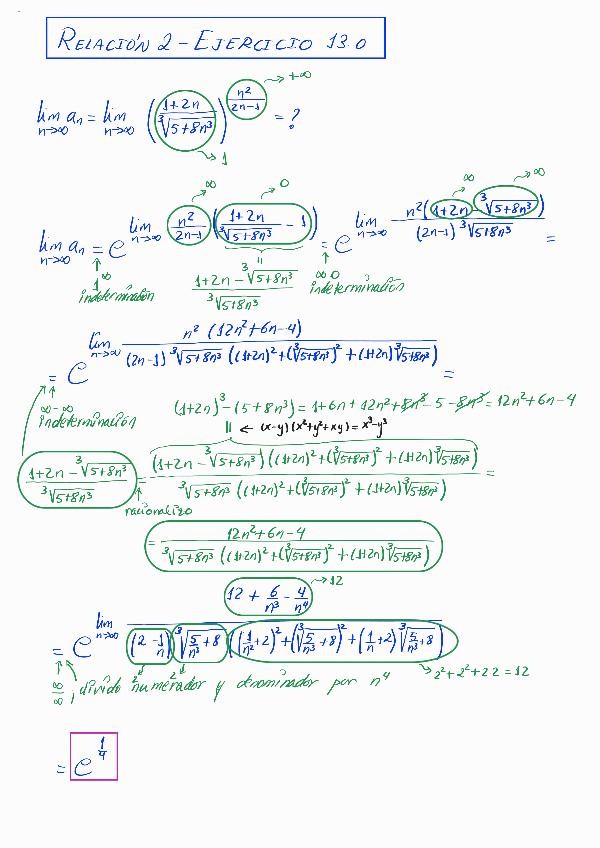 RELACIÓN 2 - EJERCICIO 13.0
lim n→∞ aₙ = lim n→∞ ( (1+2n) / ∛(5+8n³) )^( n² / (2n-1) ) = ?
→ +∞
→ 1
lim n→∞ aₙ = e^( lim n→∞ n²/(2n-1) ( (1+2n)/∛(5+8n³) - 1 ) ) = e^( lim n→∞ n²(1+2n - ∛(5+8n³)) / ((2n-1) ∛(5+8n³)) ) =
→ ∞ → 0 → ∞ → ∞
1^∞ indeterminación
= (1+2n - ∛(5+8n³)) / ∛(5+8n³)
∞·0 indeterminación
= e^( lim n→∞ n² (12n²+6n-4) / ((2n-1) ∛(5+8n³) ((1+2n)² + (∛(5+8n³))² + (1+2n) ∛(5+8n³))) ) =
∞-∞ indeterminación
(1+2n)³ - (5+8n³) = 1+6n+12n²+8n³-5-8n³ = 12n²+6n-4
← (x-y)(x²+y²+xy) = x³-y³
(1+2n - ∛(5+8n³)) / ∛(5+8n³) = (1+2n - ∛(5+8n³)) ((1+2n)² + (∛(5+8n³))² + (1+2n) ∛(5+8n³)) / (∛(5+8n³) ((1+2n)² + (∛(5+8n³))² + (1+2n) ∛(5+8n³))) =
racionalizo
= (12n²+6n-4) / (∛(5+8n³) ((1+2n)² + (∛(5+8n³))² + (1+2n) ∛(5+8n³)))
= e^( lim n→∞ (12 + 6/n³ - 4/n⁴) / ((2 - 1/n) ∛(5/n³+8) ((1/n²+2)² + (∛(5/n³+8))² + (1/n+2) ∛(5/n³+8))) )
→ 12
2 2
→ 2²+2²+2·2=12
∞/∞ ; divido numerador y denominador por n⁴
= e^(1/4)